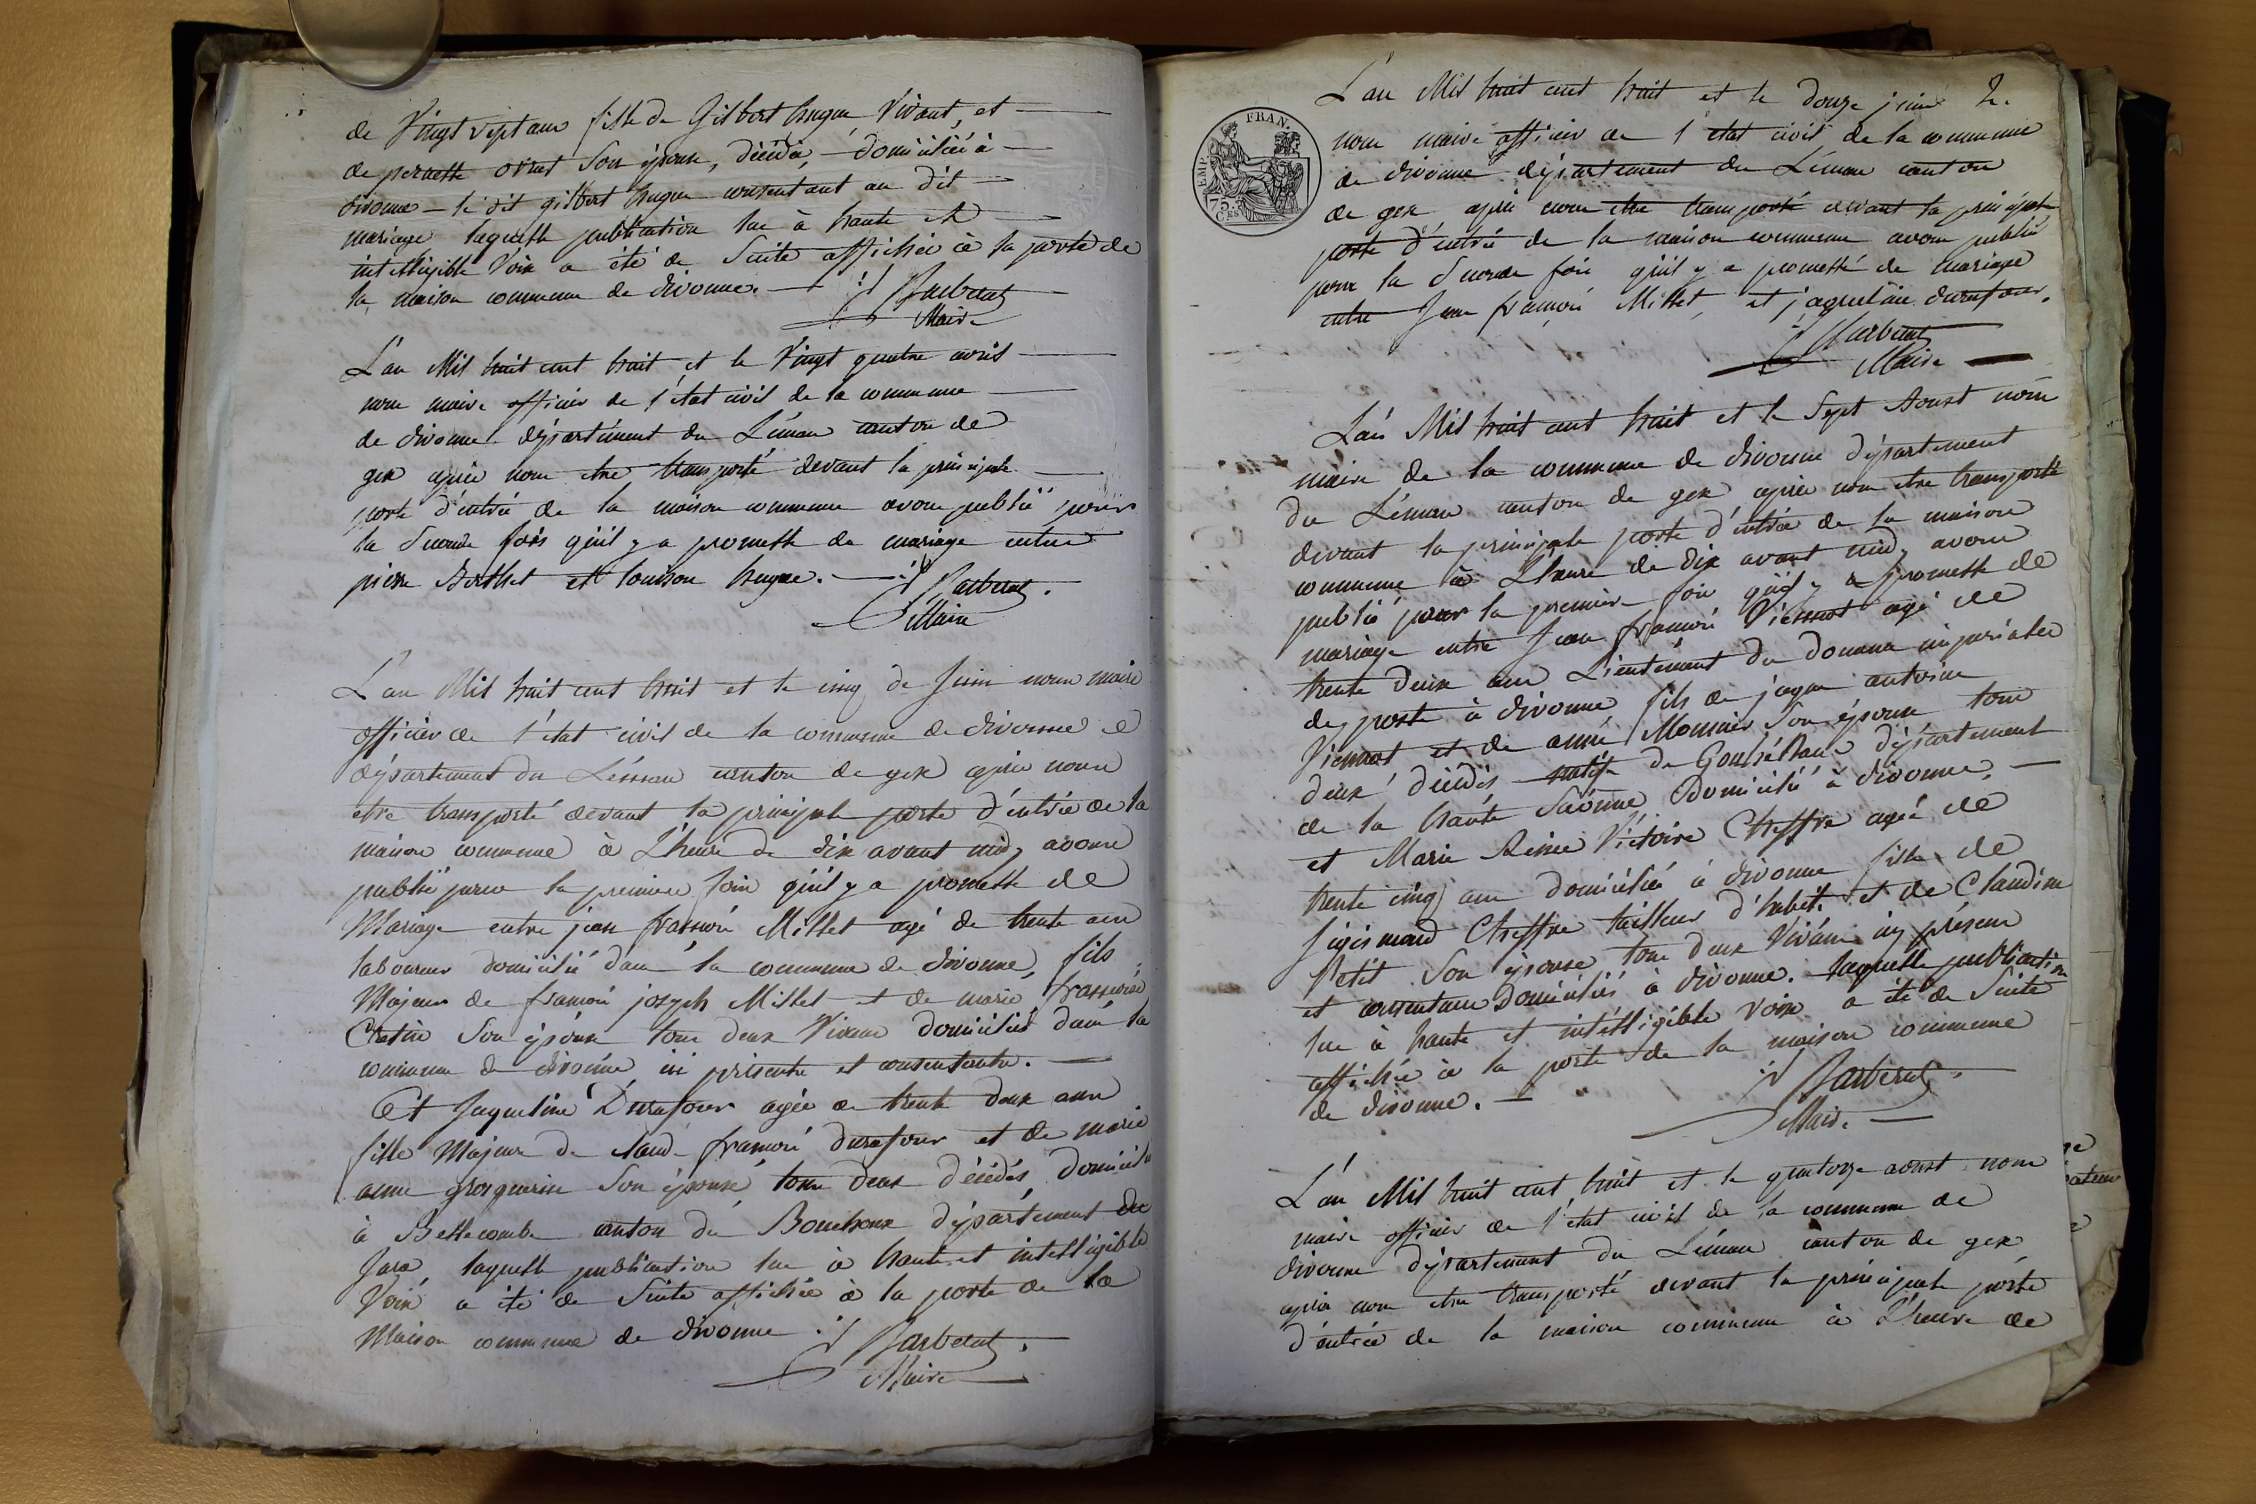 de Vingt Sept ans fille de Gilbert hugue Vivant, et
de pernette ornet Son épouse, décédée, domiciliée à
divonne - le dit gilbert hugue consentant au dit
mariage laquelle publication lue à haute et
intelligible Voix a été de Suite affichée à la porte de
la maison commune de divonne.
Barberat
Maire
L'an Mil huit cent huit et le Vingt quatre avril
nous maire officier de l'état civil de la commune
de divonne département du Léman canton de
gex après nous etre transporté devant la principale
porte d'entrée de la maison commune avons publié pour
la Seconde fois qu'il y a promesse de mariage entre
pierre Berthet et louison hugue.
Barberat
Maire
L'an Mil huit cent huit et le cinq de Juin nous maire
officier de l'état civil de la commune de divonne
département du Léman canton de gex après nous
etre transporté devant la principale porte d'entrée de la
maison commune à L'heure de dix avant midy avons
publié pour la premiere fois qu'il y a promesse de
Mariage entre jean françois Millet agé de trente ans
laboureur domicilié dans la commune de divonne, fils
Majeur de françois joseph Millet et de marie françoise
Chrétin Son épouse tous deux Vivans domiciliés dans la
commune de divonne, ici présents et consentants.
Et Jaqueline Durafour agée de trente deux ans
fille Majeure de claude françois durafour et de marie
anne grosgurin Son épouse tous deux décédés domiciliée
à Bellecombe canton du Bouchoux département du
Jura laquelle publication lue à haute et intelligible
Voix a été de Suite affichée à la porte de la
Maison commune de divonne
Barberat
Maire
2.
L'an Mil huit cent huit et le douze juin
nous maire officier de l'état civil de la commune
de divonne département du Léman canton
de gex après nous etre transporté devant la principale
porte d'entrée de la maison commune avons publié
pour la Seconde fois qu'il y a promesse de mariage
entre Jean françois Millet, et jaqueline durafour.
Barberat
Maire
EMP. FRAN.
75.
C.ES
L'an Mil huit cent huit et le Sept Aoust nous
maire de la commune de divonne département
du Léman canton de gex après nous etre transporté
devant la principale porte d'entrée de la maison
commune à L'heure de dix avant midy avons
publié pour la premiere fois qu'il y a promesse de
mariage entre Jean françois Viennot agé de
trente deux ans Lieutenant des douanes impériales
de poste à divonne fils de jaque antoine
Viennot et de aimé Monnier Son épouse tous
deux décédés natif de département
de la haute Saônne domicilié à divonne,
et Marie Reine Victoire Cheffre agée de
trente cinq ans domiciliée à divonne fille de
Sigismond Cheffre tailleur d'habits et de Claudine
Petit Son épouse tous deux Vivans icy présens
et consentans domiciliés à divonne. laquelle publication
lue à haute et intélligible voix a été de Suite
affichée à la porte de la maison commune
de divonne.
Barberat
Maire
L'an Mil huit cent huit et le quatorze aoust nous
maire officier de l'état civil de la commune de
divonne département du Léman canton de gex
après nous etre transporté devant la principale porte
d'entrée de la maison commune à L'heure de